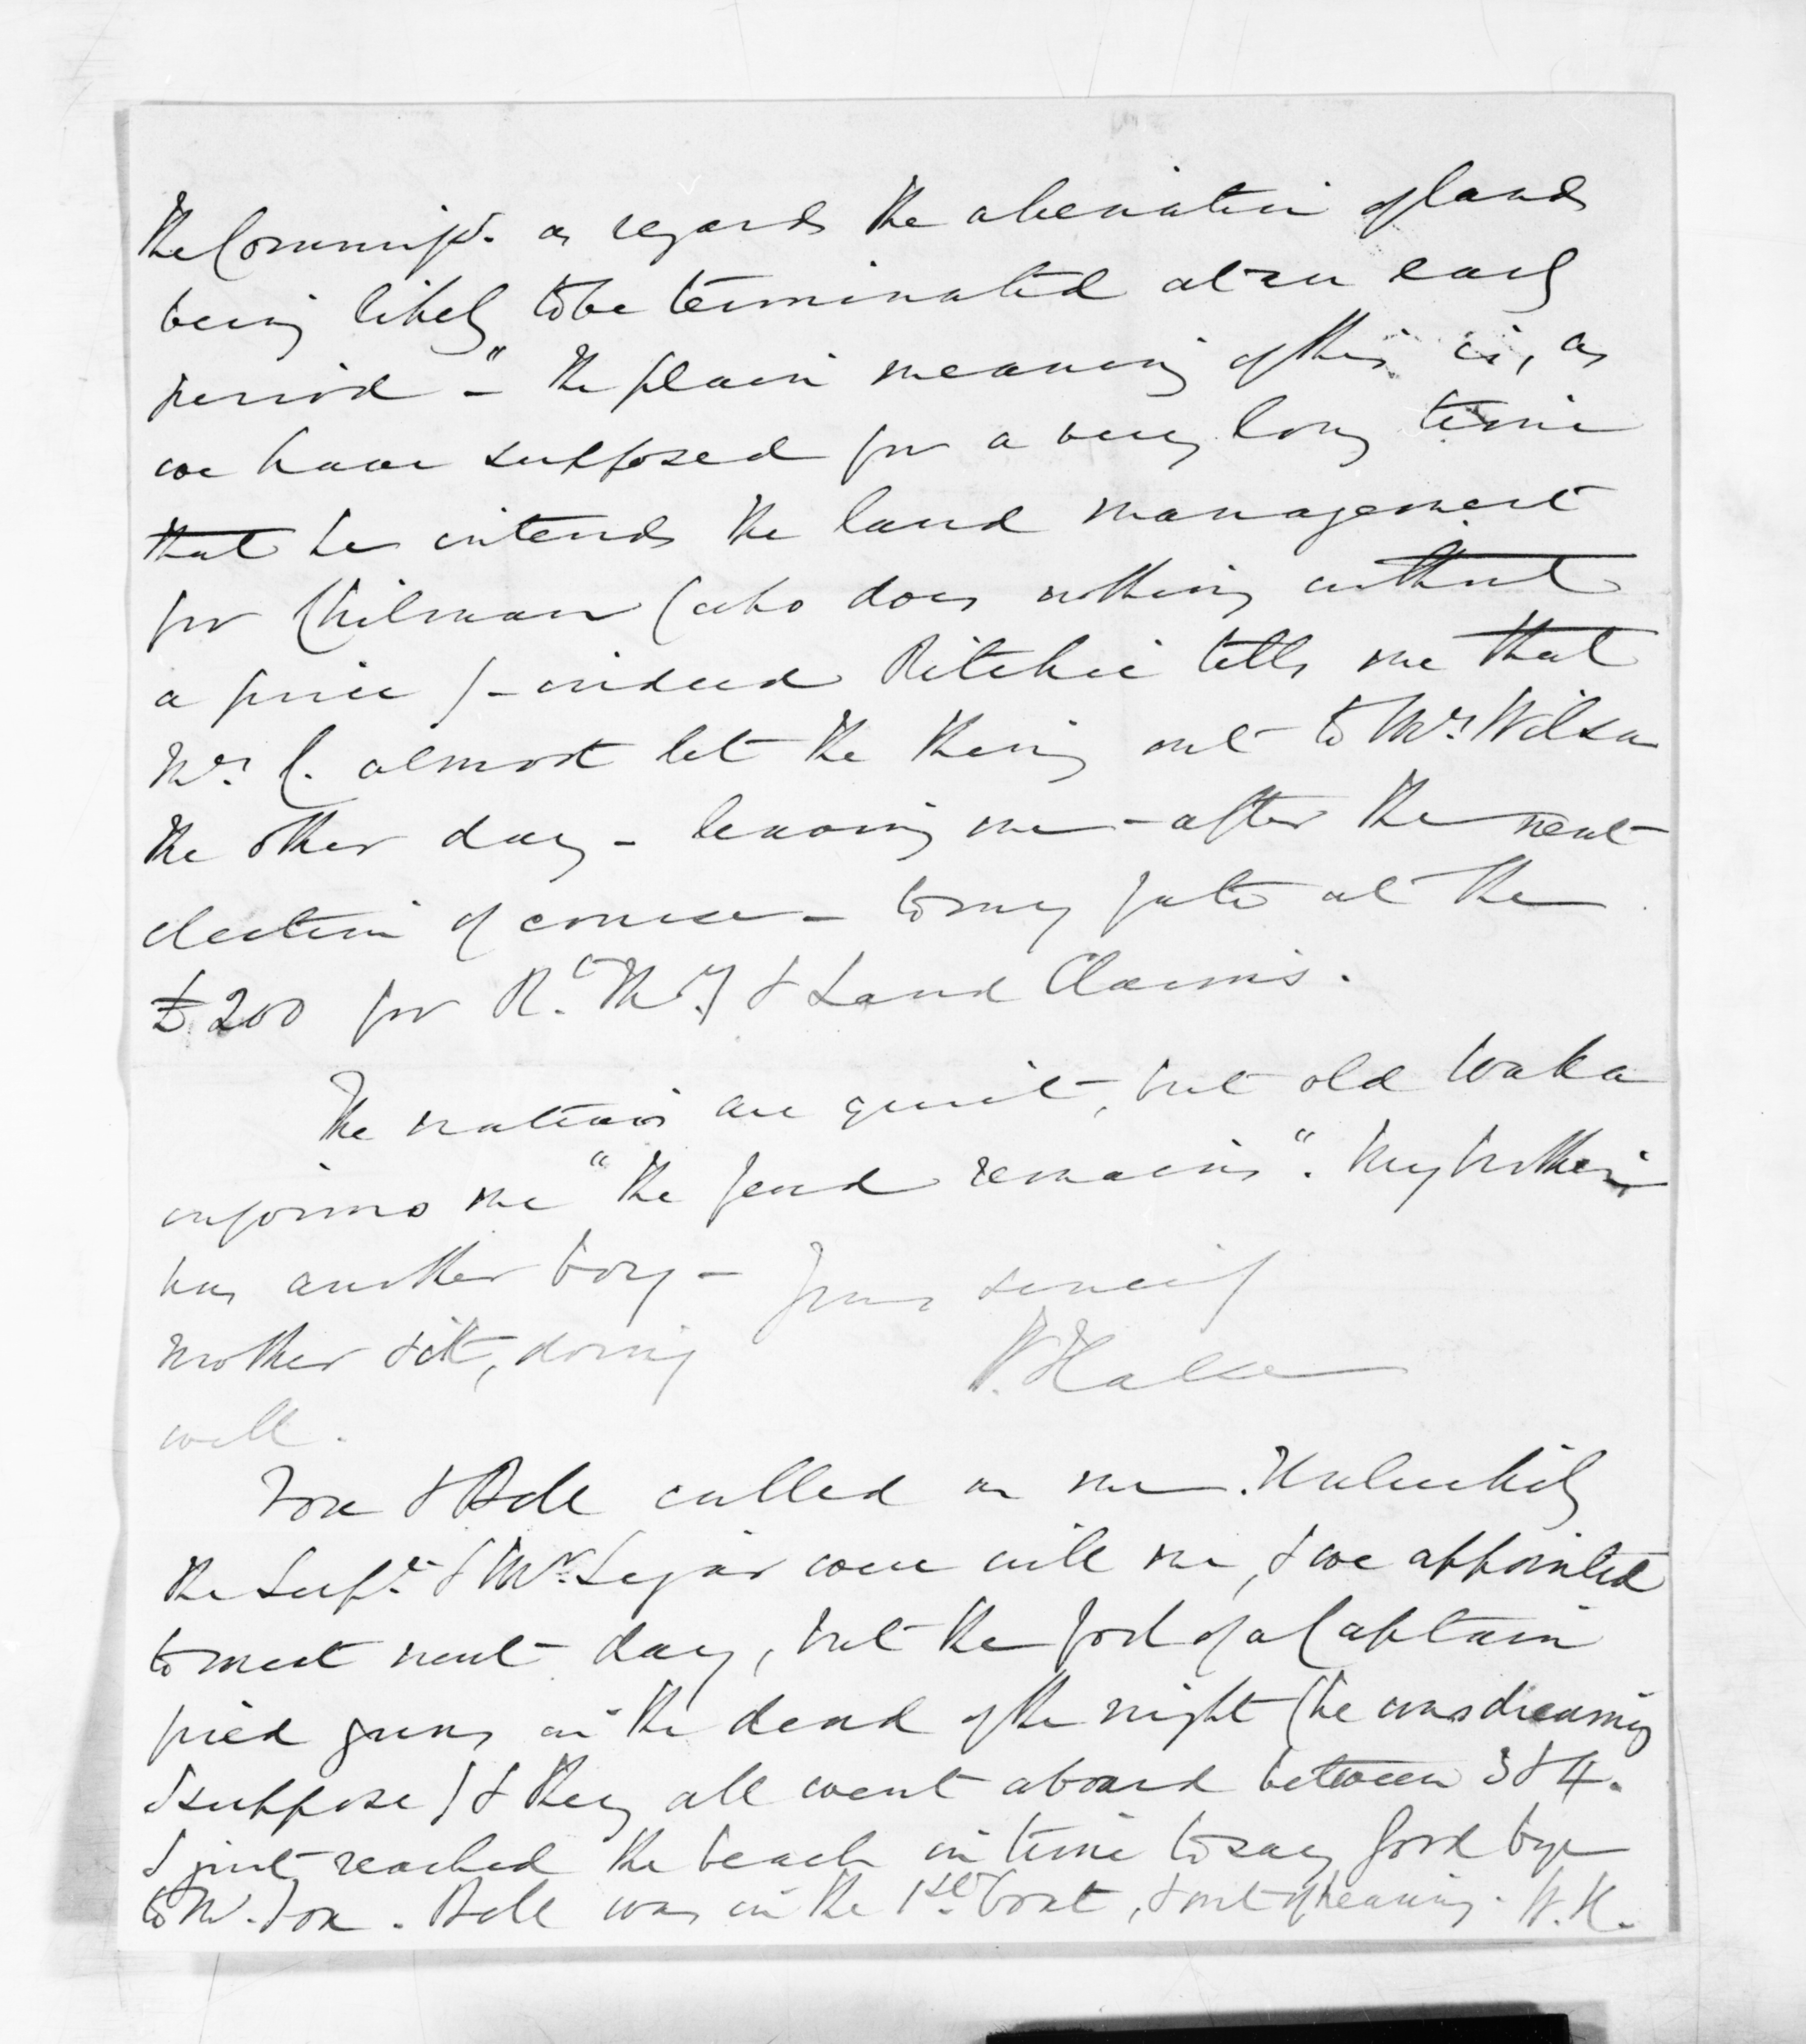 the Commissr. as regards the alienation of lands
being likely to be terminated at an early
period -" The plain meaning of this is, as
we have supposed for a very long time
that he intends the land management
for Chilman (who does nothing without
a price) - indeed Ritchie tells me that
Mrs. C. almost let the thing out to Mrs. Wilson
the other day - leaving me - after the next
election of course - to my fate at the
£200 for Rt. Mr. & Land Claims.
The natives are quiet, but old Waka
informs me "the feud remains". My brother
has another boy - Yours sincerely
mother & it, doing
W. Halse
well.
Fox & Bell called on me. Unluckily
the Supt. & Mr. Logan were with me, & we appointed
to meet next day, but the fool of a Captain
fired guns in the dead of the night (he was dreaming
I suppose) & they all went aboard between 3 & 4.
I just reached the beach in time to say good bye
to Mr. Fox. Bell was in the 1st. boat, & out of hearing. W.H.